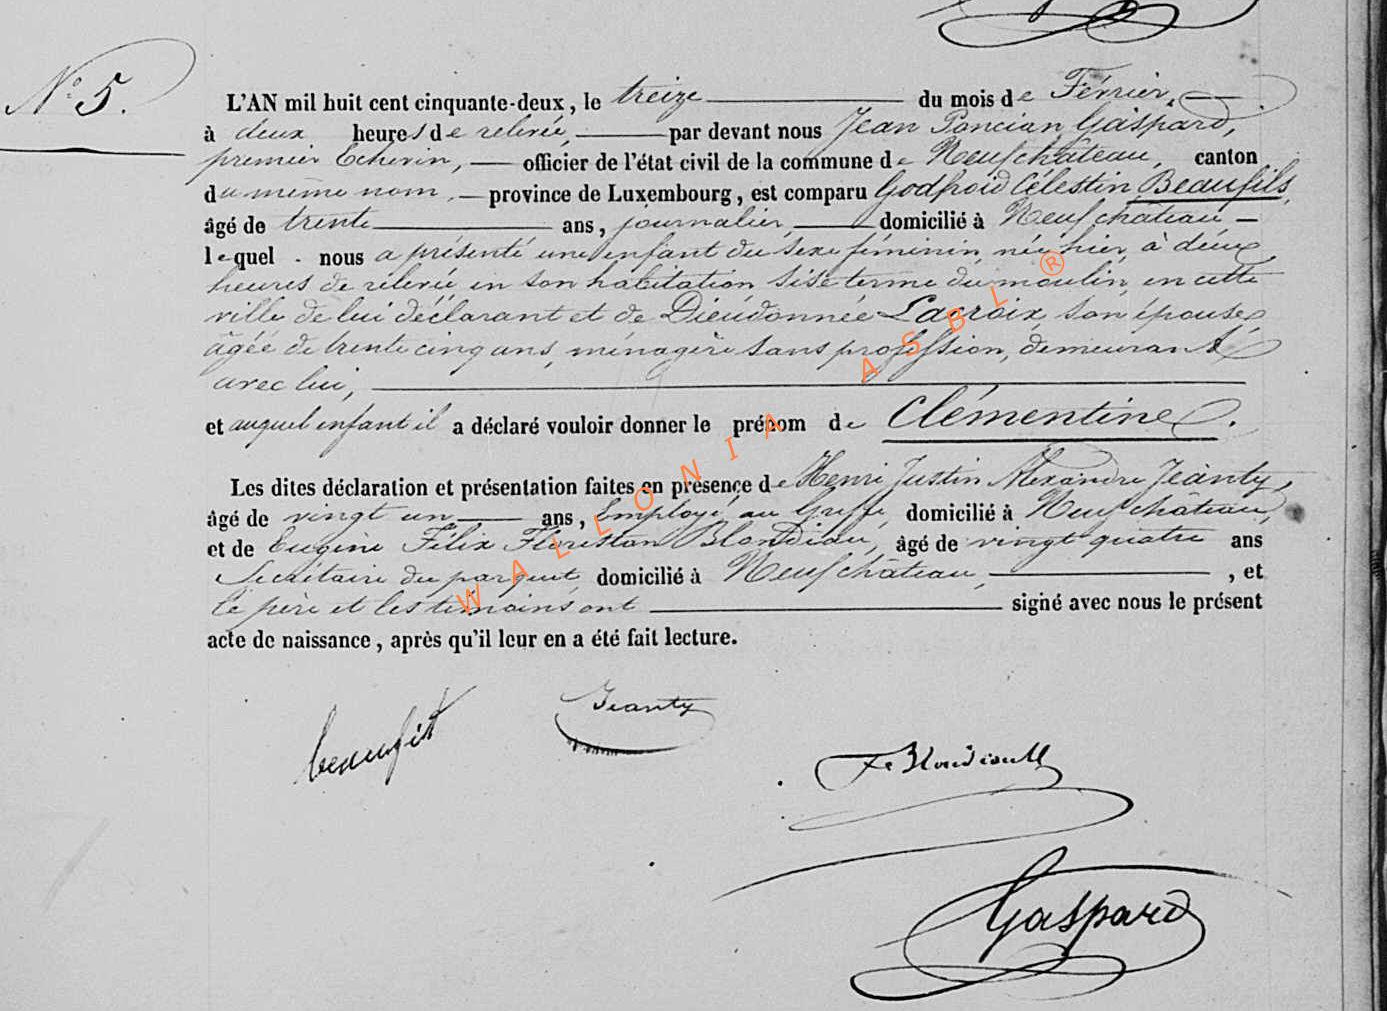 N° 5.
L'AN mil huit cent cinquante-deux, le treize du mois de Février,
à deux heures de relevée, par devant nous Jean Poncian Gaspard,
premier Echevin, officier de l'état civil de la commune de Neufchâteau, canton
du même nom, province de Luxembourg, est comparu Godfroid Célestin Beaufils,
âgé de trente ans, journalier, domicilié à Neufchâteau
lequel nous a présenté une enfant du sexe féminin, née hier, à deux
heures de relevée en son habitation sise terme du moulin, en cette
ville de lui déclarant et de Dieudonnée Lacroix son épouse
âgée de trente cinq ans, ménagère sans profession, demeurant
avec lui,
et auquel enfant il a déclaré vouloir donner le prénom de Clémentine.
Les dites déclaration et présentation faites en présence de Henri Justin Alexandre Jeanty,
âgé de vingt un ans, Employé au Greffe, domicilié à Neufchâteau,
et de Eugène Félix Floristan Blondiau, âgé de vingt quatre ans
Secrétaire du parquet, domicilié à Neufchâteau, , et
le père et les témoins ont signé avec nous le présent
acte de naissance, après qu'il leur en a été fait lecture.
beaufils
Jeanty
Gaspard
WALLONIA ASBL ®